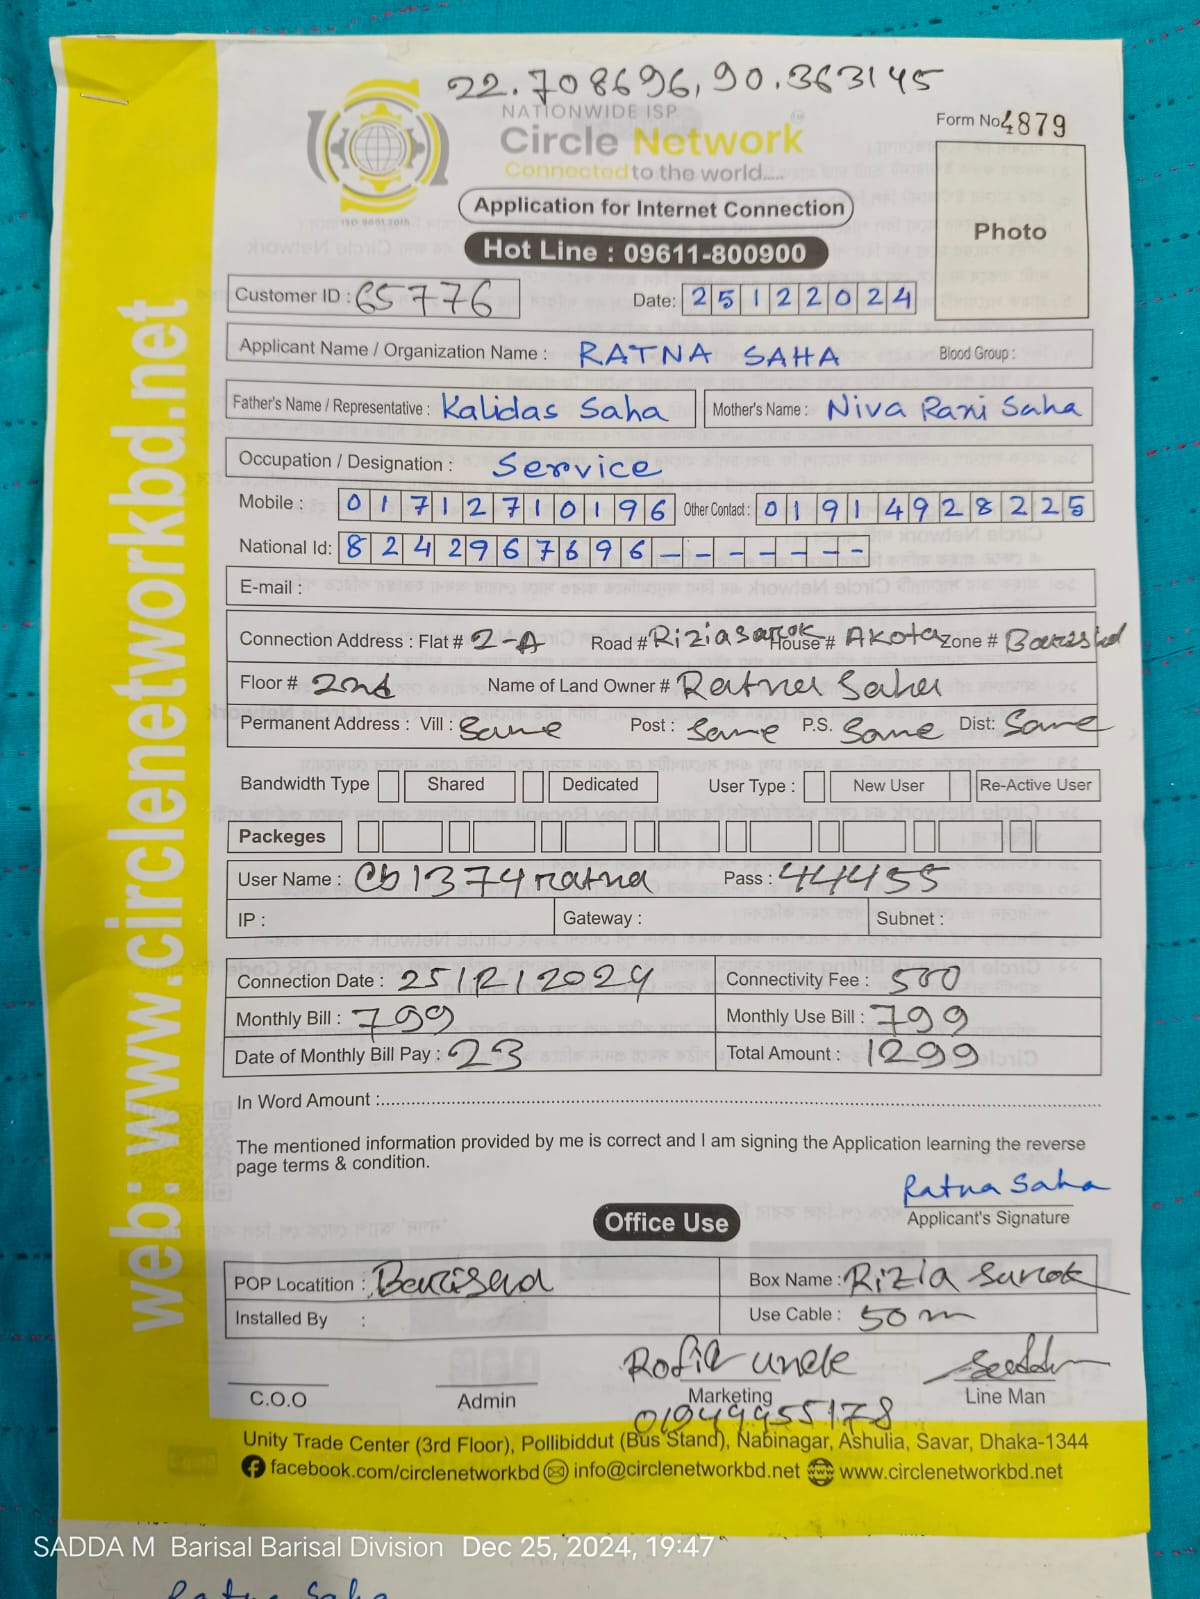 22.708696, 90.363145
NATIONWIDE ISP
Circle Network
Connected to the world.....
ISO 9001:2015
Form No 4879
Application for Internet Connection
Photo
Hot Line : 09611-800900
Customer ID : 65776 Date: 25122024
Applicant Name / Organization Name : RATNA SAHA Blood Group :
Father's Name / Representative : Kalidas Saha Mother's Name : Niva Rani Saha
Occupation / Designation : Service
Mobile : 01712710196 Other Contact : 01914928225
National Id: 8242967696 – – – – – – –
E-mail :
Connection Address : Flat # 2-A Road # Rizia Sarok House # Akota Zone # Barisal
Floor # 2nd Name of Land Owner # Ratna Saha
Permanent Address : Vill : Same Post : Same P.S. Same Dist: Same
Bandwidth Type Shared Dedicated User Type : New User Re-Active User
Packeges
User Name : cb1374ratna Pass : 44455
IP : Gateway : Subnet :
Connection Date : 25/12/2024 Connectivity Fee : 500
Monthly Bill : 799 Monthly Use Bill : 799
Date of Monthly Bill Pay : 23 Total Amount : 1299
In Word Amount :
The mentioned information provided by me is correct and I am signing the Application learning the reverse
page terms & condition.
Ratna Saha
Applicant's Signature
Office Use
POP Locatition : Barisal Box Name : Rizia Sarok
Installed By : Use Cable : 50 m
Rofiq uncle
C.O.O Admin Marketing Line Man
01949955178
Unity Trade Center (3rd Floor), Pollibiddut (Bus Stand), Nabinagar, Ashulia, Savar, Dhaka-1344
facebook.com/circlenetworkbd info@circlenetworkbd.net www.circlenetworkbd.net
web: www.circlenetworkbd.net
SADDA M Barisal Barisal Division Dec 25, 2024, 19:47
Ratna Saha